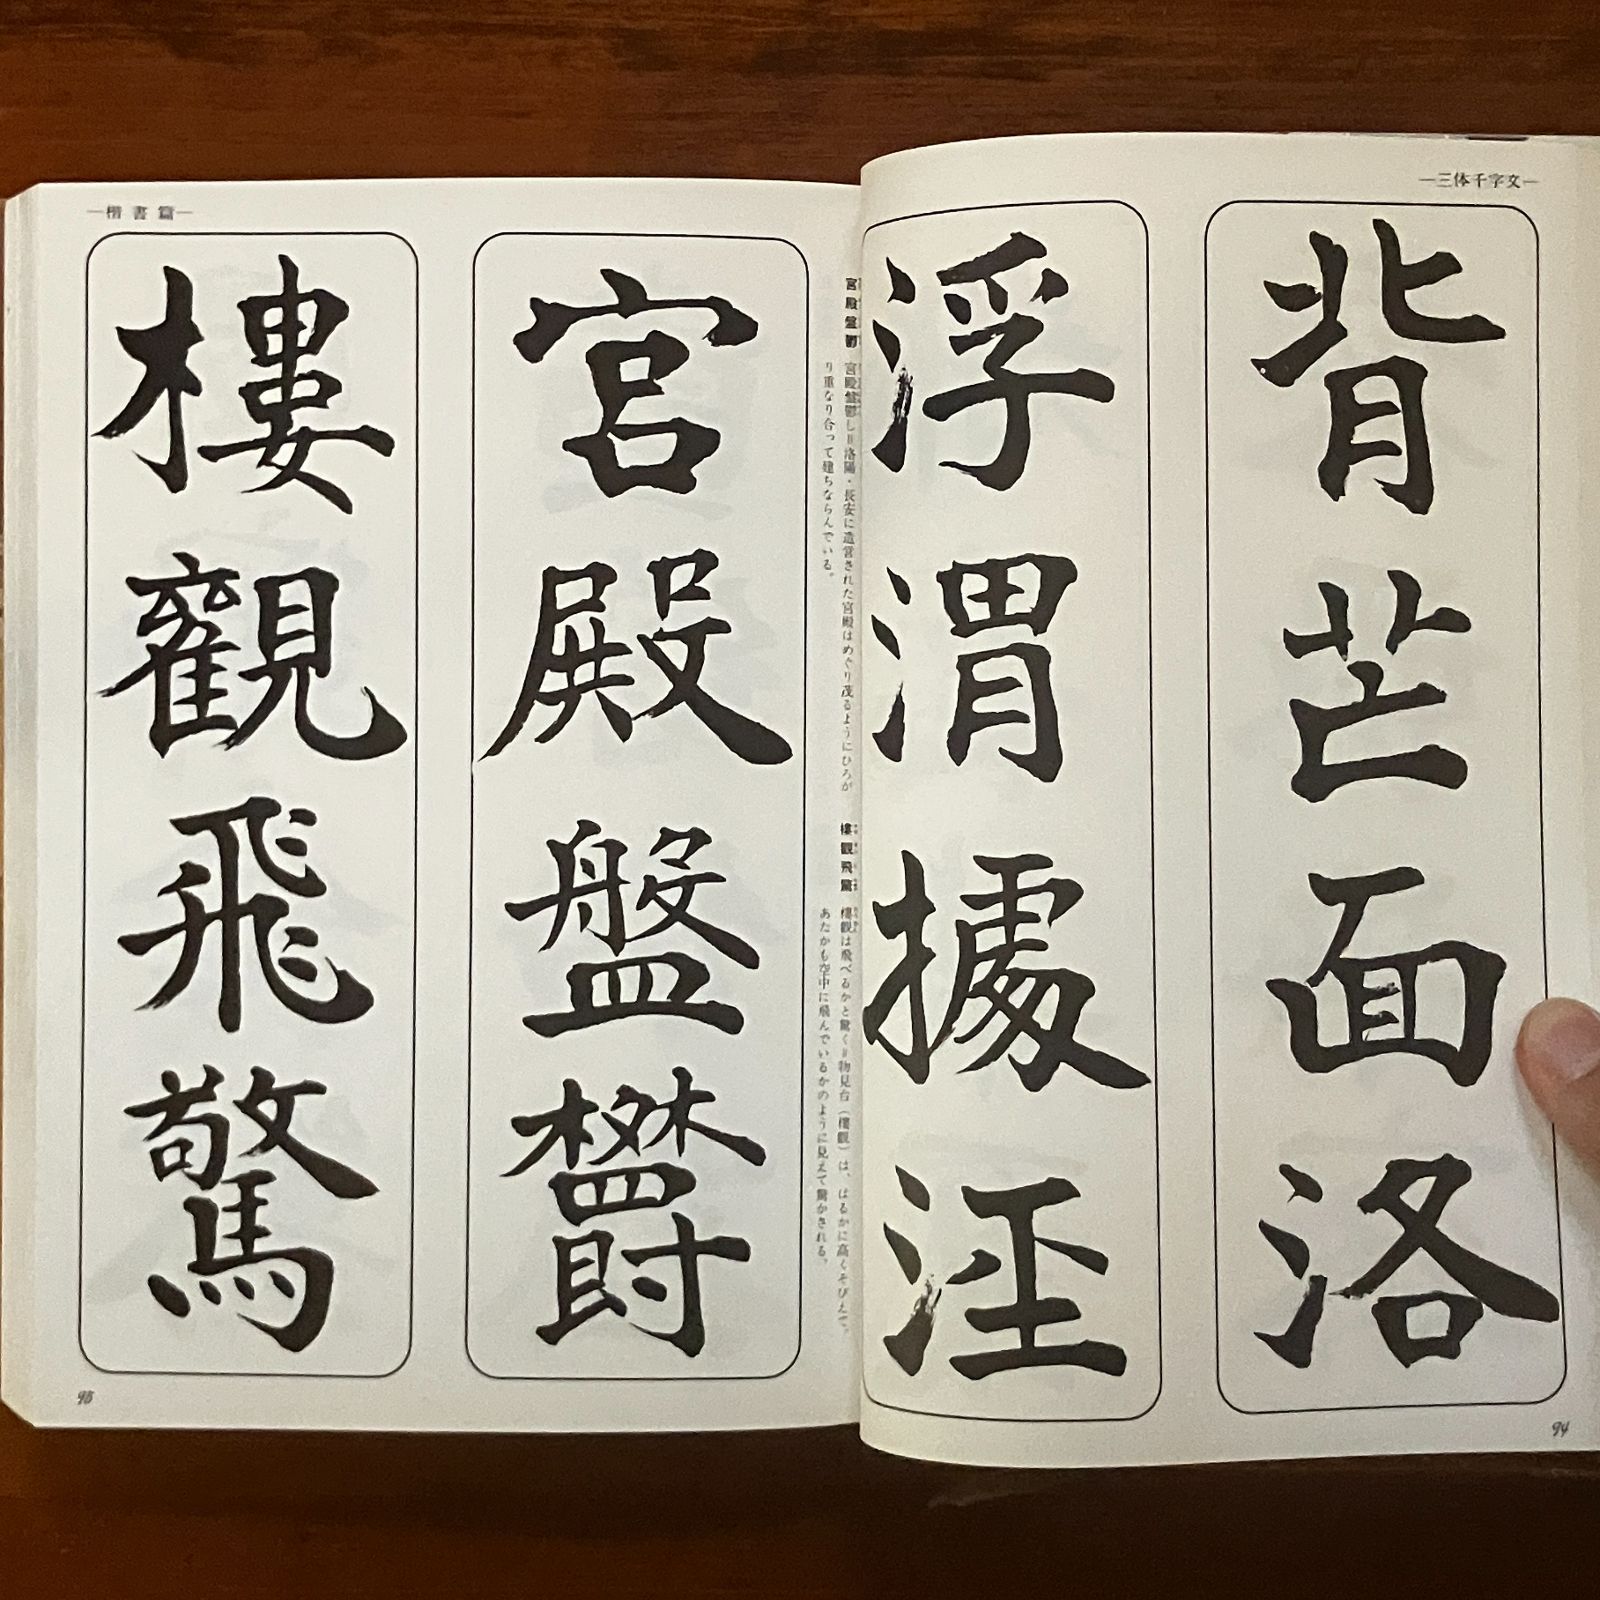 —三体千字文—
背芒面洛
浮渭據涇
94
—楷書篇—
宮殿盤鬱
宮殿盤鬱し＝洛陽・長安に造営された宮殿はめぐり茂るようにひろが
り重なり合って建ちならんでいる。
樓觀飛驚
樓觀は飛べるかと驚く＝物見台（樓觀）は、はるかに高くそびえて、
あたかも空中に飛んでいるかのように見えて驚かされる。
宮殿盤鬱
樓觀飛驚
95